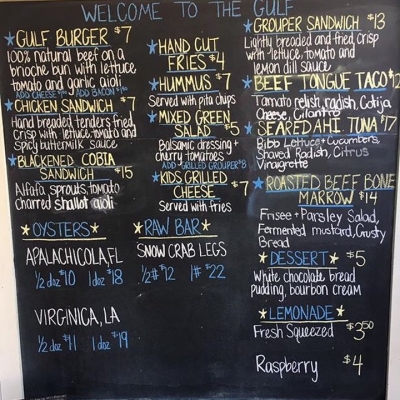 WELCOME TO THE GULF
GULF BURGER $7
100% natural beef on a
brioche bun with lettuce
tomato and garlic aioli
ADD CHEESE $1.00 ADD BACON $1.50
CHICKEN SANDWICH $7
Hand breaded tenders fried
Crisp with lettuce, tomato and
Spicy buttermilk sauce
BLACKENED COBIA
SANDWICH $15
Alfafa sprouts, tomato
charred shallot aioli
OYSTERS
APALACHICOLA, FL
1/2 doz $10 1 doz $18
VIRGINICA, LA
1/2 doz $11 1 doz $19
HAND CUT
FRIES $4
HUMMUS $7
Served with pita chips
MIXED GREEN
SALAD $5
Balsamic dressing +
cherry tomatoes
ADD GRILLED GROUPER $8
KIDS GRILLED
CHEESE $7
Served with fries
RAW BAR
SNOW CRAB LEGS
1/2# $12 1# $22
GROUPER SANDWICH $13
Lightly breaded and fried, crisp
with lettuce, tomato and
lemon dill sauce
BEEF TONGUE TACO $12
Tomato relish, radish, Cotija
Cheese, Cilantro
SEARED AHI TUNA $17
Bibb Lettuce + Cucumbers,
Shaved Radish, Citrus
Vinagrette
ROASTED BEEF BONE
MARROW $14
Frisee + Parsley Salad,
Fermented mustard, Crusty
Bread
DESSERT $5
White chocolate bread
pudding, bourbon cream
LEMONADE
Fresh Squeezed $3.50
Raspberry $4